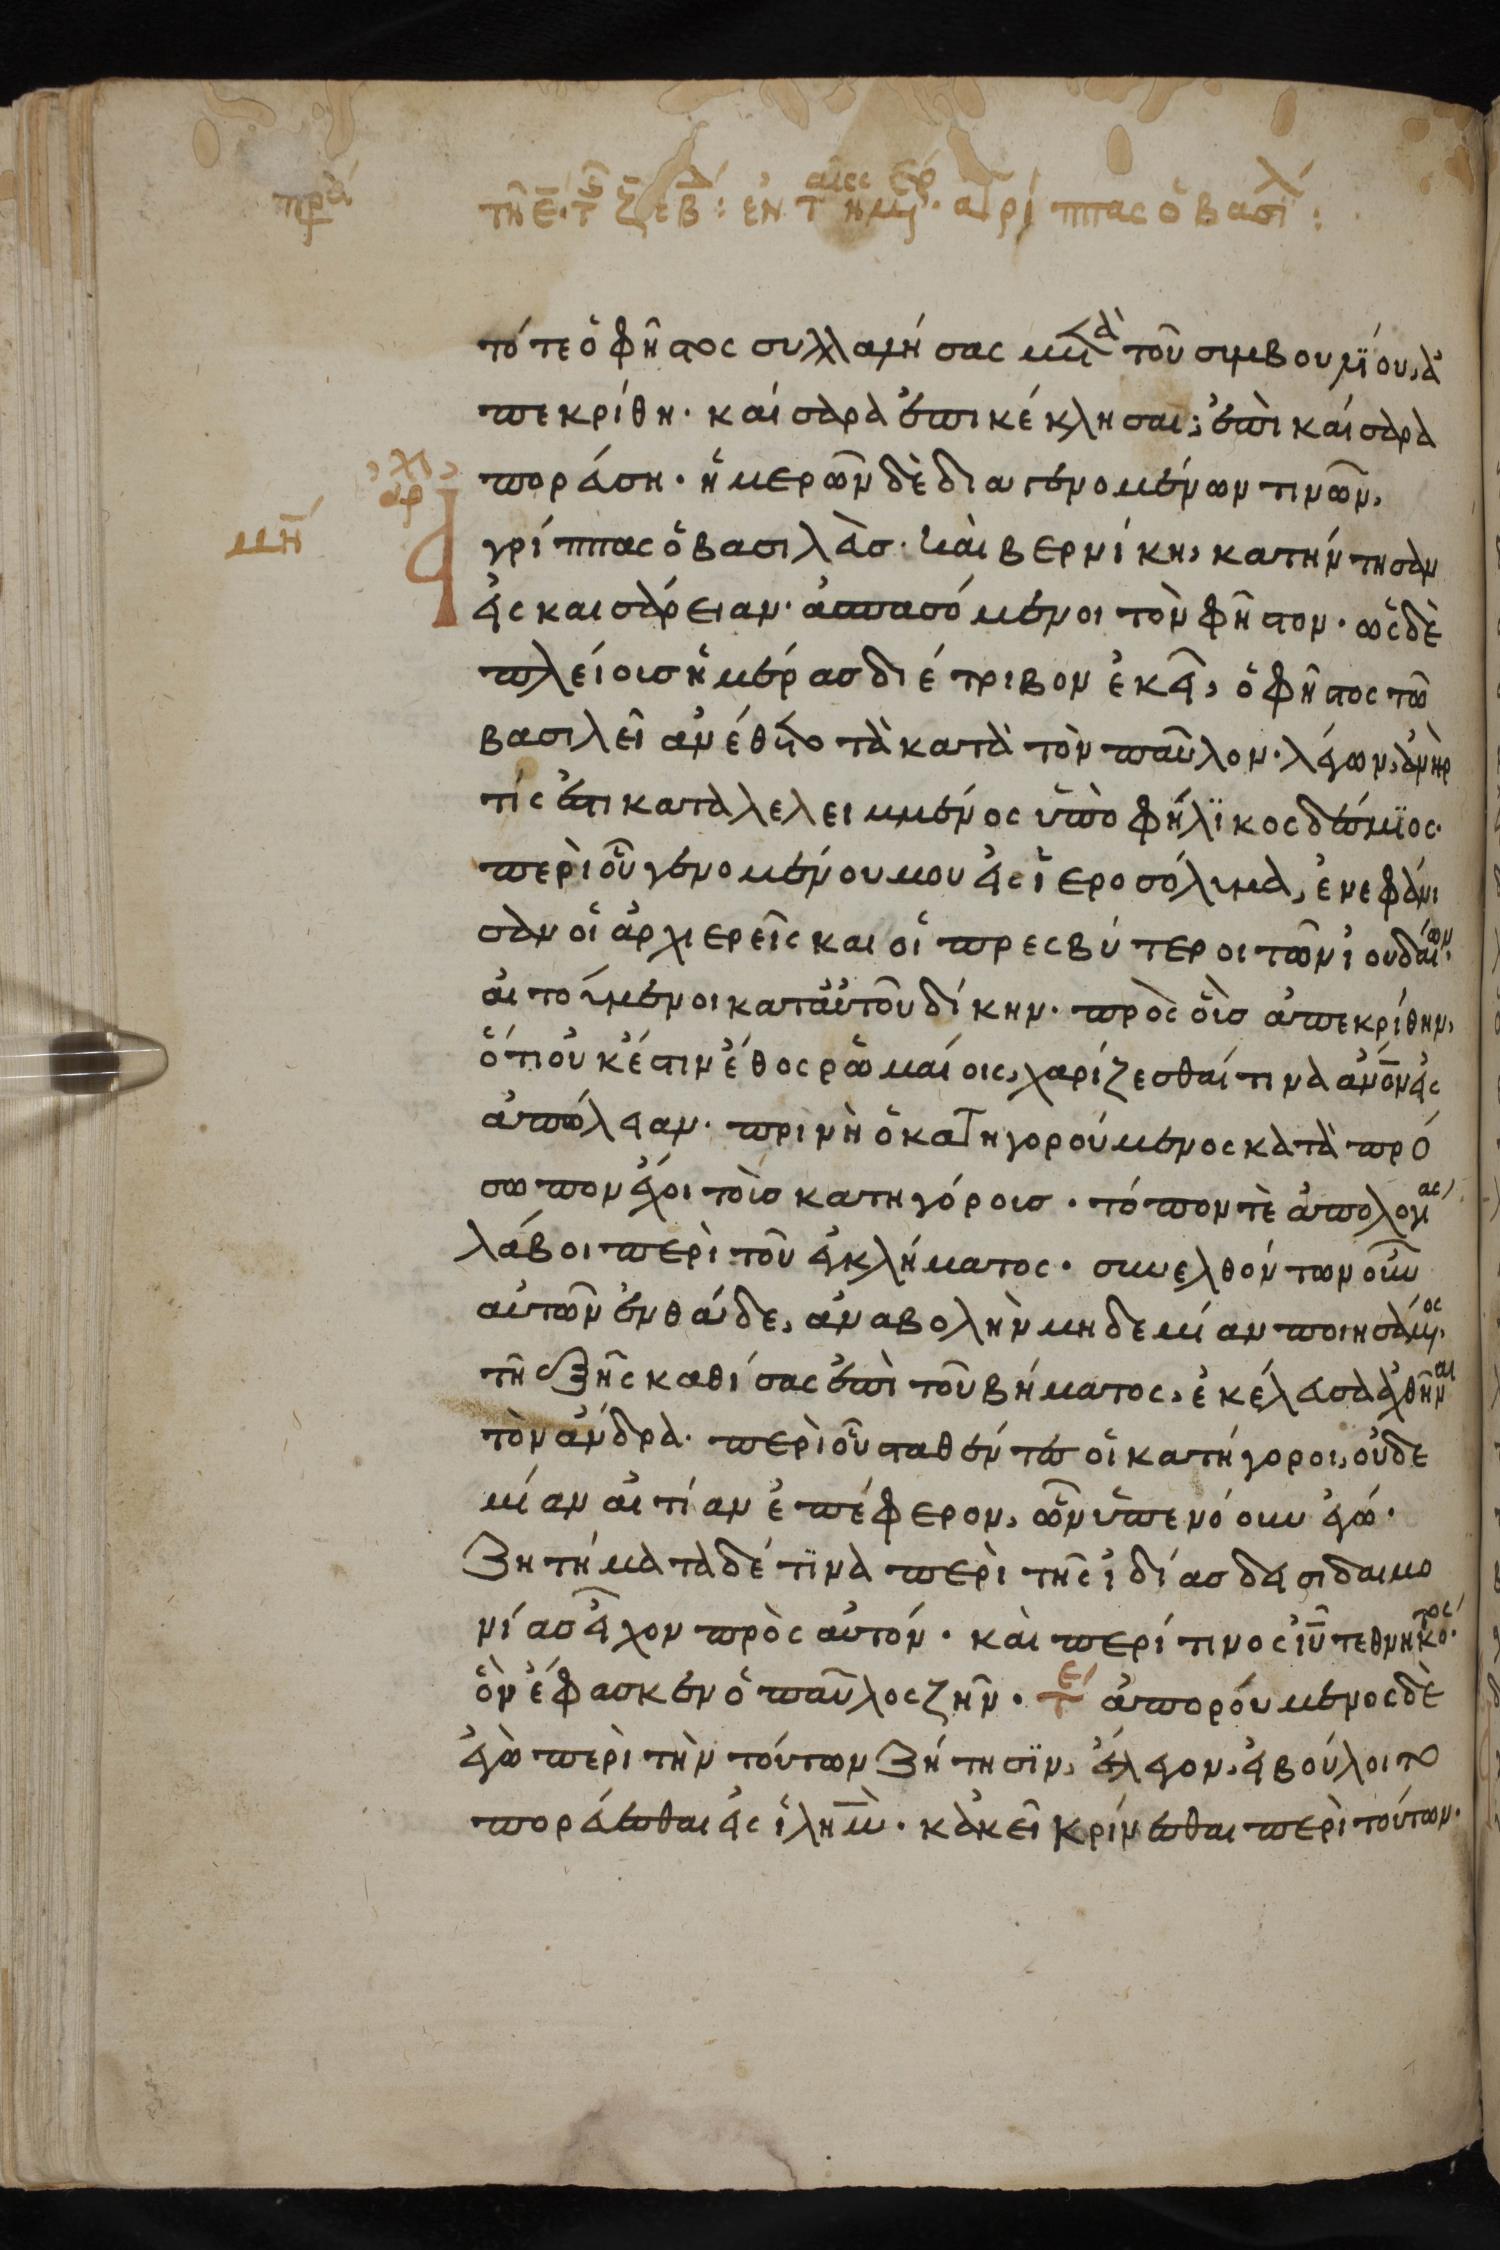 πρα
τῆ ε τῆς ζ εβδ : ἐν τ ημ · αγρίππας ὁ βασιλ :
τότε ὁ φῆστος συλλαλήσας μετὰ τοῦ συμβουλΐου, ἀ
πεκρίθη · καίσαρα ἐπικέκλησαι; ἐπὶ καίσαρα
πορεύση · ἡμερῶν δὲ διαγενομένων τινῶν,
αρχ
μη
Αγρίππας ὁ βασιλεὺσ · καὶ βερνίκη, κατήντησαν
εἰς καισάρειαν · ἀσπασόμενοι τὸν φῆστον · ὡς δὲ
πλείουσ ἡμέρασ διέτριβον ἐκεῖ, ὁ φῆστος τῶ
βασιλεῖ ἀνέθετο τὰ κατὰ τὸν παῦλον · λέγων, ἀνὴρ
τίς ἐστι καταλελειμμένος ὑπὸ φήλϊκος δέσμϊος ·
περὶ οὗ γενομένου μου εἰς ἱεροσόλυμα, ἐνεφάνι
σαν οἱ ἀρχιερεῖς και οἱ πρεσβύτεροι τῶν ἰουδαίων ·
αἰτούμενοι κατ αὐτοῦ δίκην · πρὸς οὓσ ἀπεκρίθην,
ὅτι οὐκ ἔστιν ἔθος ῥωμαίοις, χαρίζεσθαί τινα ἄνον εἰς
ἀπώλειαν · πρινὴ ὁ κατηγορούμενος κατὰ πρό
σωπον ἔχοι τοὺσ κατηγόρουσ · τόπον τὲ ἀπολογίας
λάβοι περὶ τοῦ ἐγκλήματος · συνελθόντων οὖν
αὐτῶν ἐνθάδε, ἀναβολὴν μηδεμίαν ποιησάμενος ·
τῆ ἑξῆς καθίσας ἐπὶ τοῦ βήματος, ἐκέλευσα ἀχθῆναι
τὸν ἄνδρα · περὶ οὗ σταθέντες οἱ κατήγοροι, οὐδε
μίαν αἰτίαν ἐπέφερον, ὧν ὑπενόουν ἐγώ ·
Ζητήματα δέ τϊνα περὶ τῆς ἰδίασ δεισιδαιμο
νίασ εἶχον πρὸς αὐτόν · καὶ περί τινος ἰῦ τεθνηκότος ·
ὃν ἔφασκεν ὁ παῦλος ζῆν · τε ἀπορούμενος δὲ
ἐγὼ περὶ τὴν τούτων ζήτησϊν, ἔλεγον, εἰ βούλοιτο
πορεύεσθαι εἰς ἱλημ · κἀκεῖ κρίνεσθαι περὶ τούτων ·